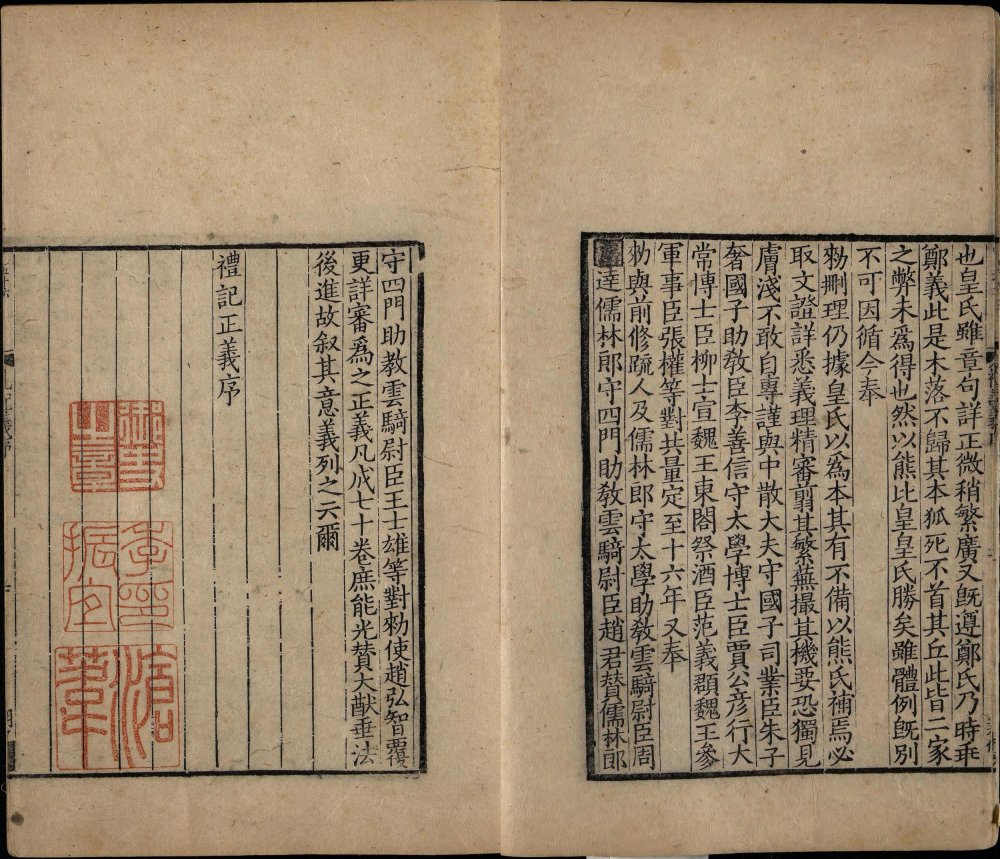 也皇氏雖章句詳正微稍繁廣又旣遵鄭氏乃時乖
鄭義此是木落不歸其本狐死不首其丘此皆二家
之弊未爲得也然以熊比皇皇氏勝矣雖體例旣別
不可因循今奉
勑刪理仍據皇氏以爲本其有不備以熊氏補焉必
取文證詳悉義理精審翦其繁蕪撮其機要恐獨見
膚淺不敢自專謹與中散大夫守國子司業臣朱子
奢國子助敎臣李善信守太學博士臣賈公彦行大
常博士臣柳士宣魏王東閤祭酒臣范義頵魏王參
軍事臣張權等對共量定至十六年又奉
勑與前修䟽人及儒林郎守太學助敎雲騎尉臣周
達儒林郎守四門助敎雲騎尉臣趙君賛儒林郎
守四門助教雲騎尉臣王士雄等對勑使趙弘智覆
更詳審爲之正義凡成七十卷庶能光賛大猷垂法
後進故叙其意義列之云爾
禮記正義序